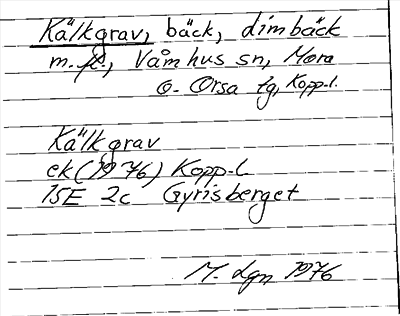 Kälkgrav, bäck, dimbäck
m. fl., Våmhus sn, Mora
o. Orsa tg, Kopp.l.
Kälkgrav
ek (1976) Kopp.l.
15E 2c Gyrisberget
M. Lgn 1976